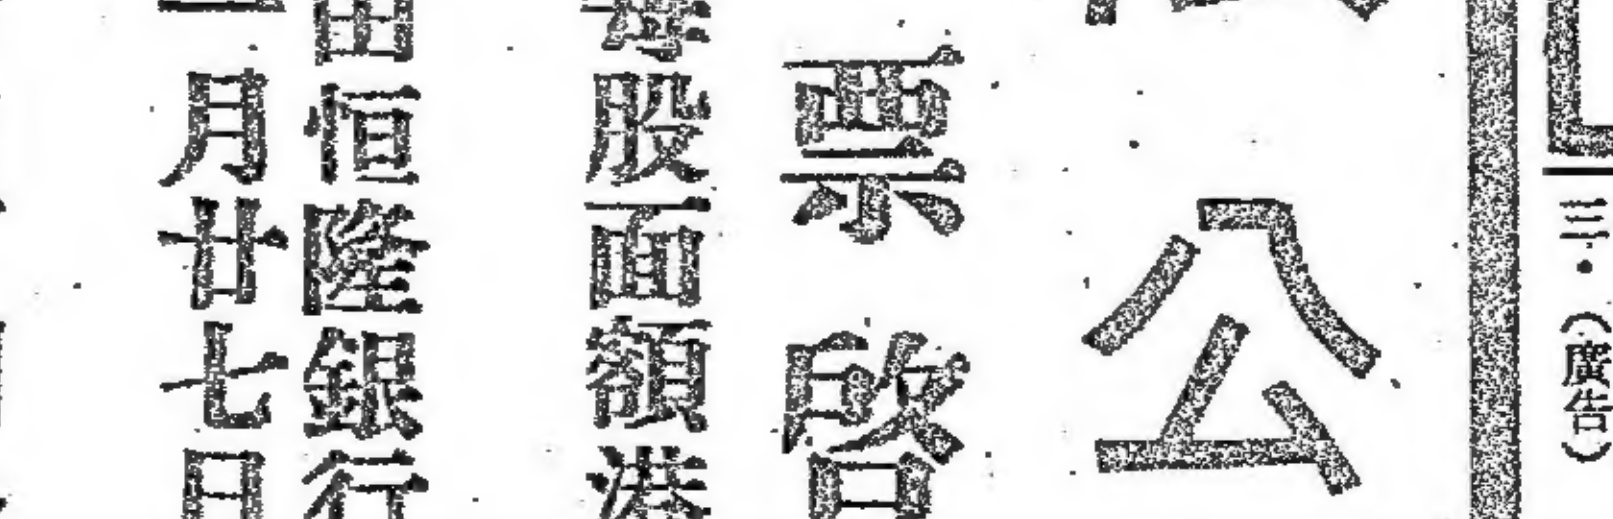 三.（廣告）
公
票啓
每股面額港
由恒隆銀行
月廿七日